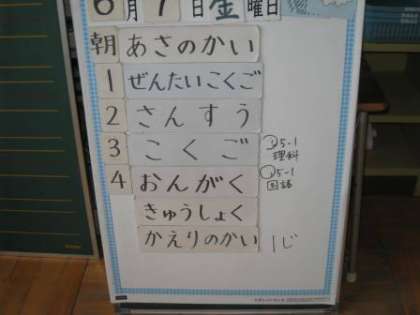 6月7日金曜日
朝 あさのかい
1 ぜんたいこくご
2 さんすう
3 こくご ③5-1 理科
4 おんがく ④5-1 国語
きゅうしょく
かえりのかい 1じ